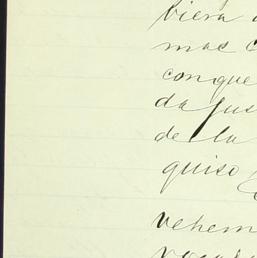 biera
mas c
conque
da jus
de la
quiso
vehem